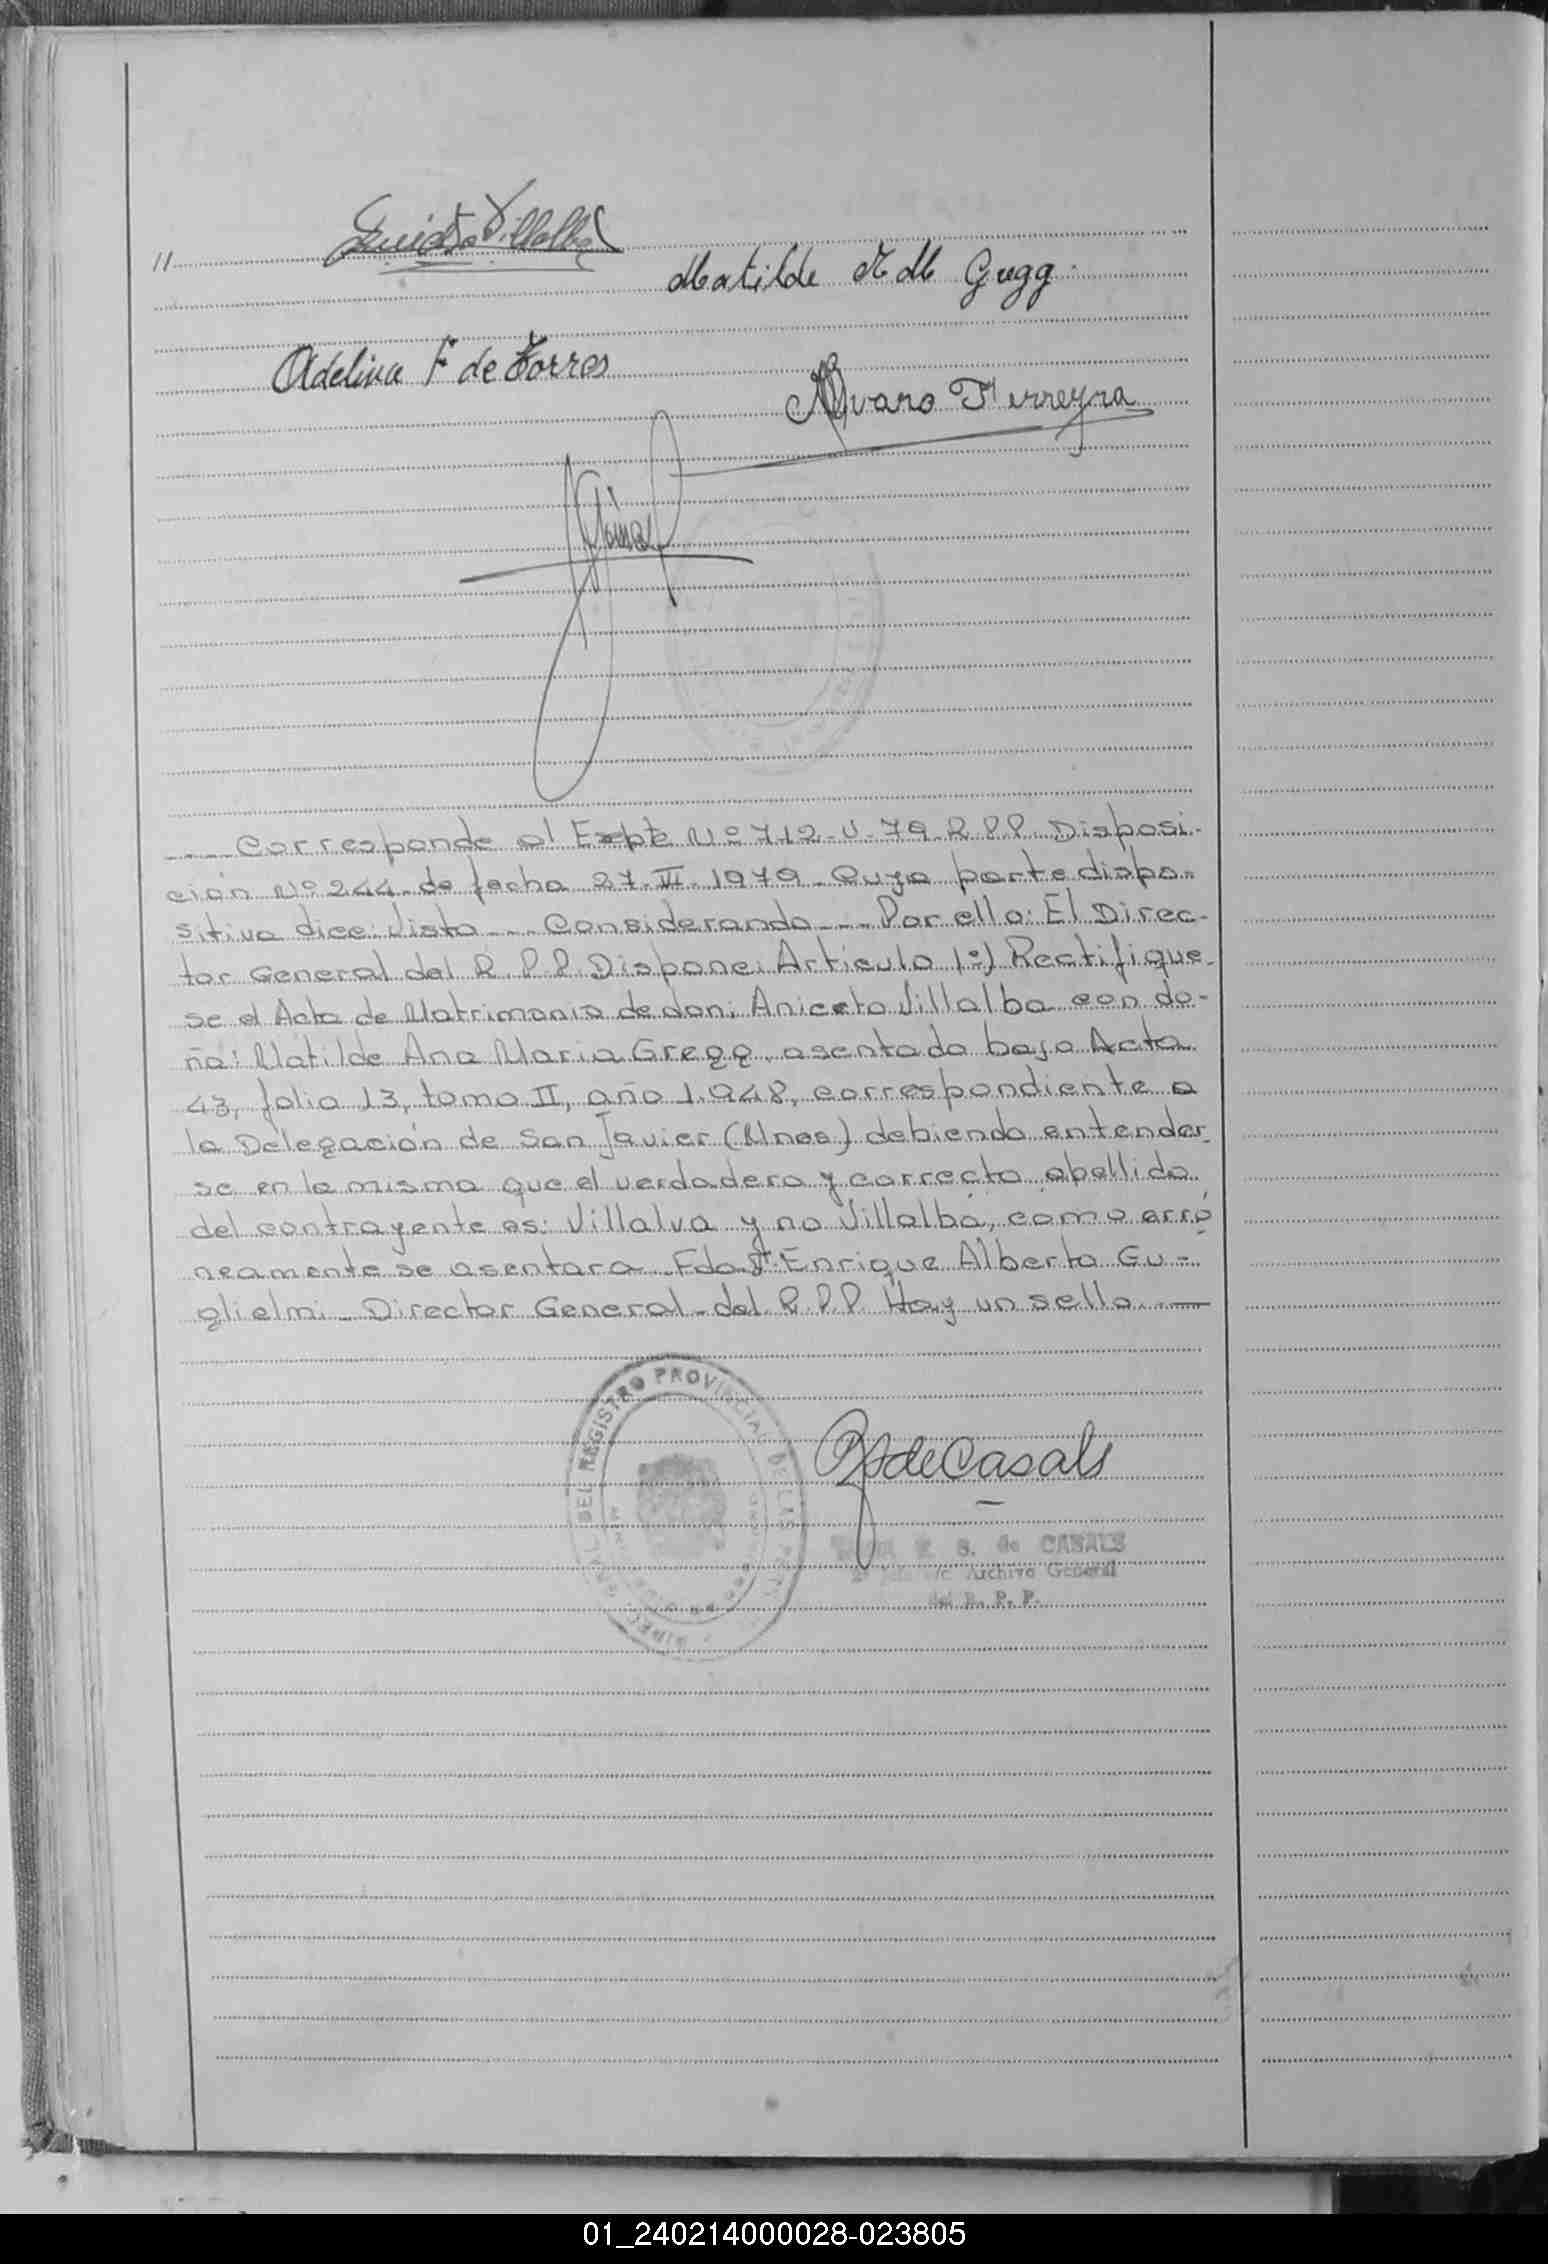 "
Villalba
Matilde A M Gregg
Adelina F de Torres
Alvaro Ferreyra
---- Corresponde al Expte Nº 712-V-79 R P P Disposi-
ción Nº 244 de fecha 27-VI-1979 - Cuya parte dispo-
sitiva dice: Visto --- Considerando --- Por ello: El Direc-
tor General del R. P. P. Dispone: Artículo 1º) Rectifique-
se el Acta de Matrimonio de don: Aniceto Villalba con do-
ña: Matilde Ana Maria Gregg, asentada bajo Acta
43, folio 13, tomo II, año 1.948, correspondiente a
la Delegación de San Javier (Mnes) debiendo entender-
se en la misma que el verdadero y correcto apellido
del contrayente es: Villalva y no Villalba, como erró
neamente se asentara - Fdo Enrique Alberto Gu-
glielmi - Director General - del R. P. P. Hay un sello. —
DEL REGISTRO PROVINCIAL DE LAS
de Casals
S. de CASALS
Archivo General
del R. P. P.
01_240214000028-023805